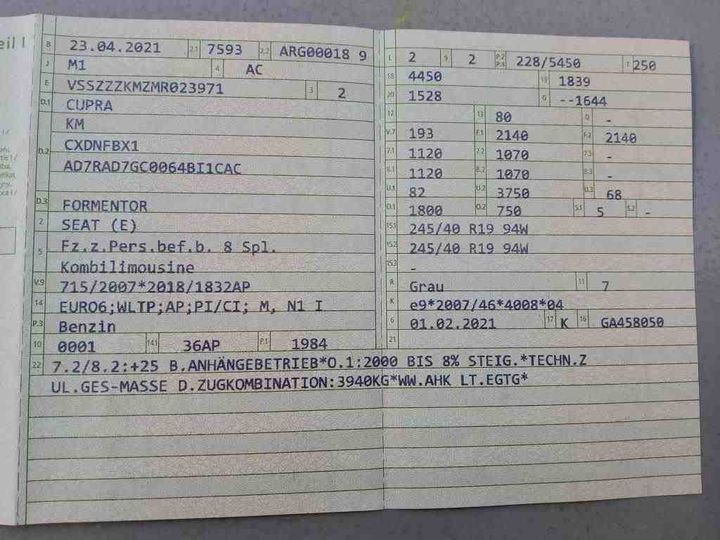 eil I
B 23.04.2021 2.1 7593 2.2 ARG00018 9
J M1 4 AC
E VSSZZZKMZMR023971 3 2
D.1 CUPRA
KM
D.2 CXDNFBX1
AD7RAD7GC0064BI1CAC
D.3 FORMENTOR
2 SEAT (E)
5 Fz.z.Pers.bef.b. 8 Spl.
Kombilimousine
V.9 715/2007*2018/1832AP
14 EURO6;WLTP;AP;PI/CI; M, N1 I
P.3 Benzin
10 0001 14.1 36AP P.1 1984
L 2 9 2 P.2 P.4 228/5450 T 250
18 4450 19 1839
20 1528 G --1644
12 13 80 Q -
V.7 193 F.1 2140 F.2 2140
7.1 1120 7.2 1070 7.3 -
8.1 1120 8.2 1070 8.3 -
U.1 82 U.2 3750 U.3 68
O.1 1800 O.2 750 S.1 5 S.2 -
15.1 245/40 R19 94W
15.2 245/40 R19 94W
15.3 -
R Grau 11 7
K e9*2007/46*4008*04
6 01.02.2021 17 K 16 GA458050
21
22 7.2/8.2:+25 B.ANHÄNGEBETRIEB*O.1:2000 BIS 8% STEIG.*TECHN.Z
UL.GES-MASSE D.ZUGKOMBINATION:3940KG*WW.AHK LT.EGTG*